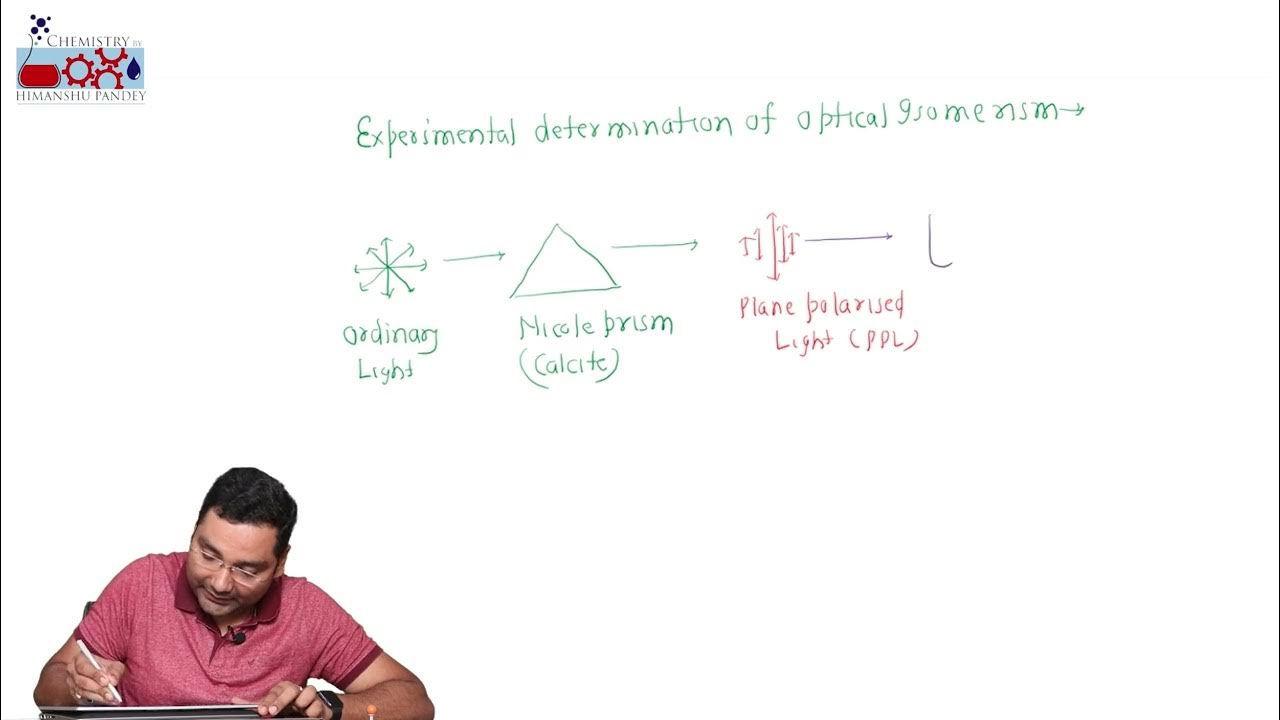 CHEMISTRY BY
HIMANSHU PANDEY
Experimental determination of optical Isomerism→
ordinary
Light
Nicole prism
(Calcite)
Plane polarised
Light (PPL)